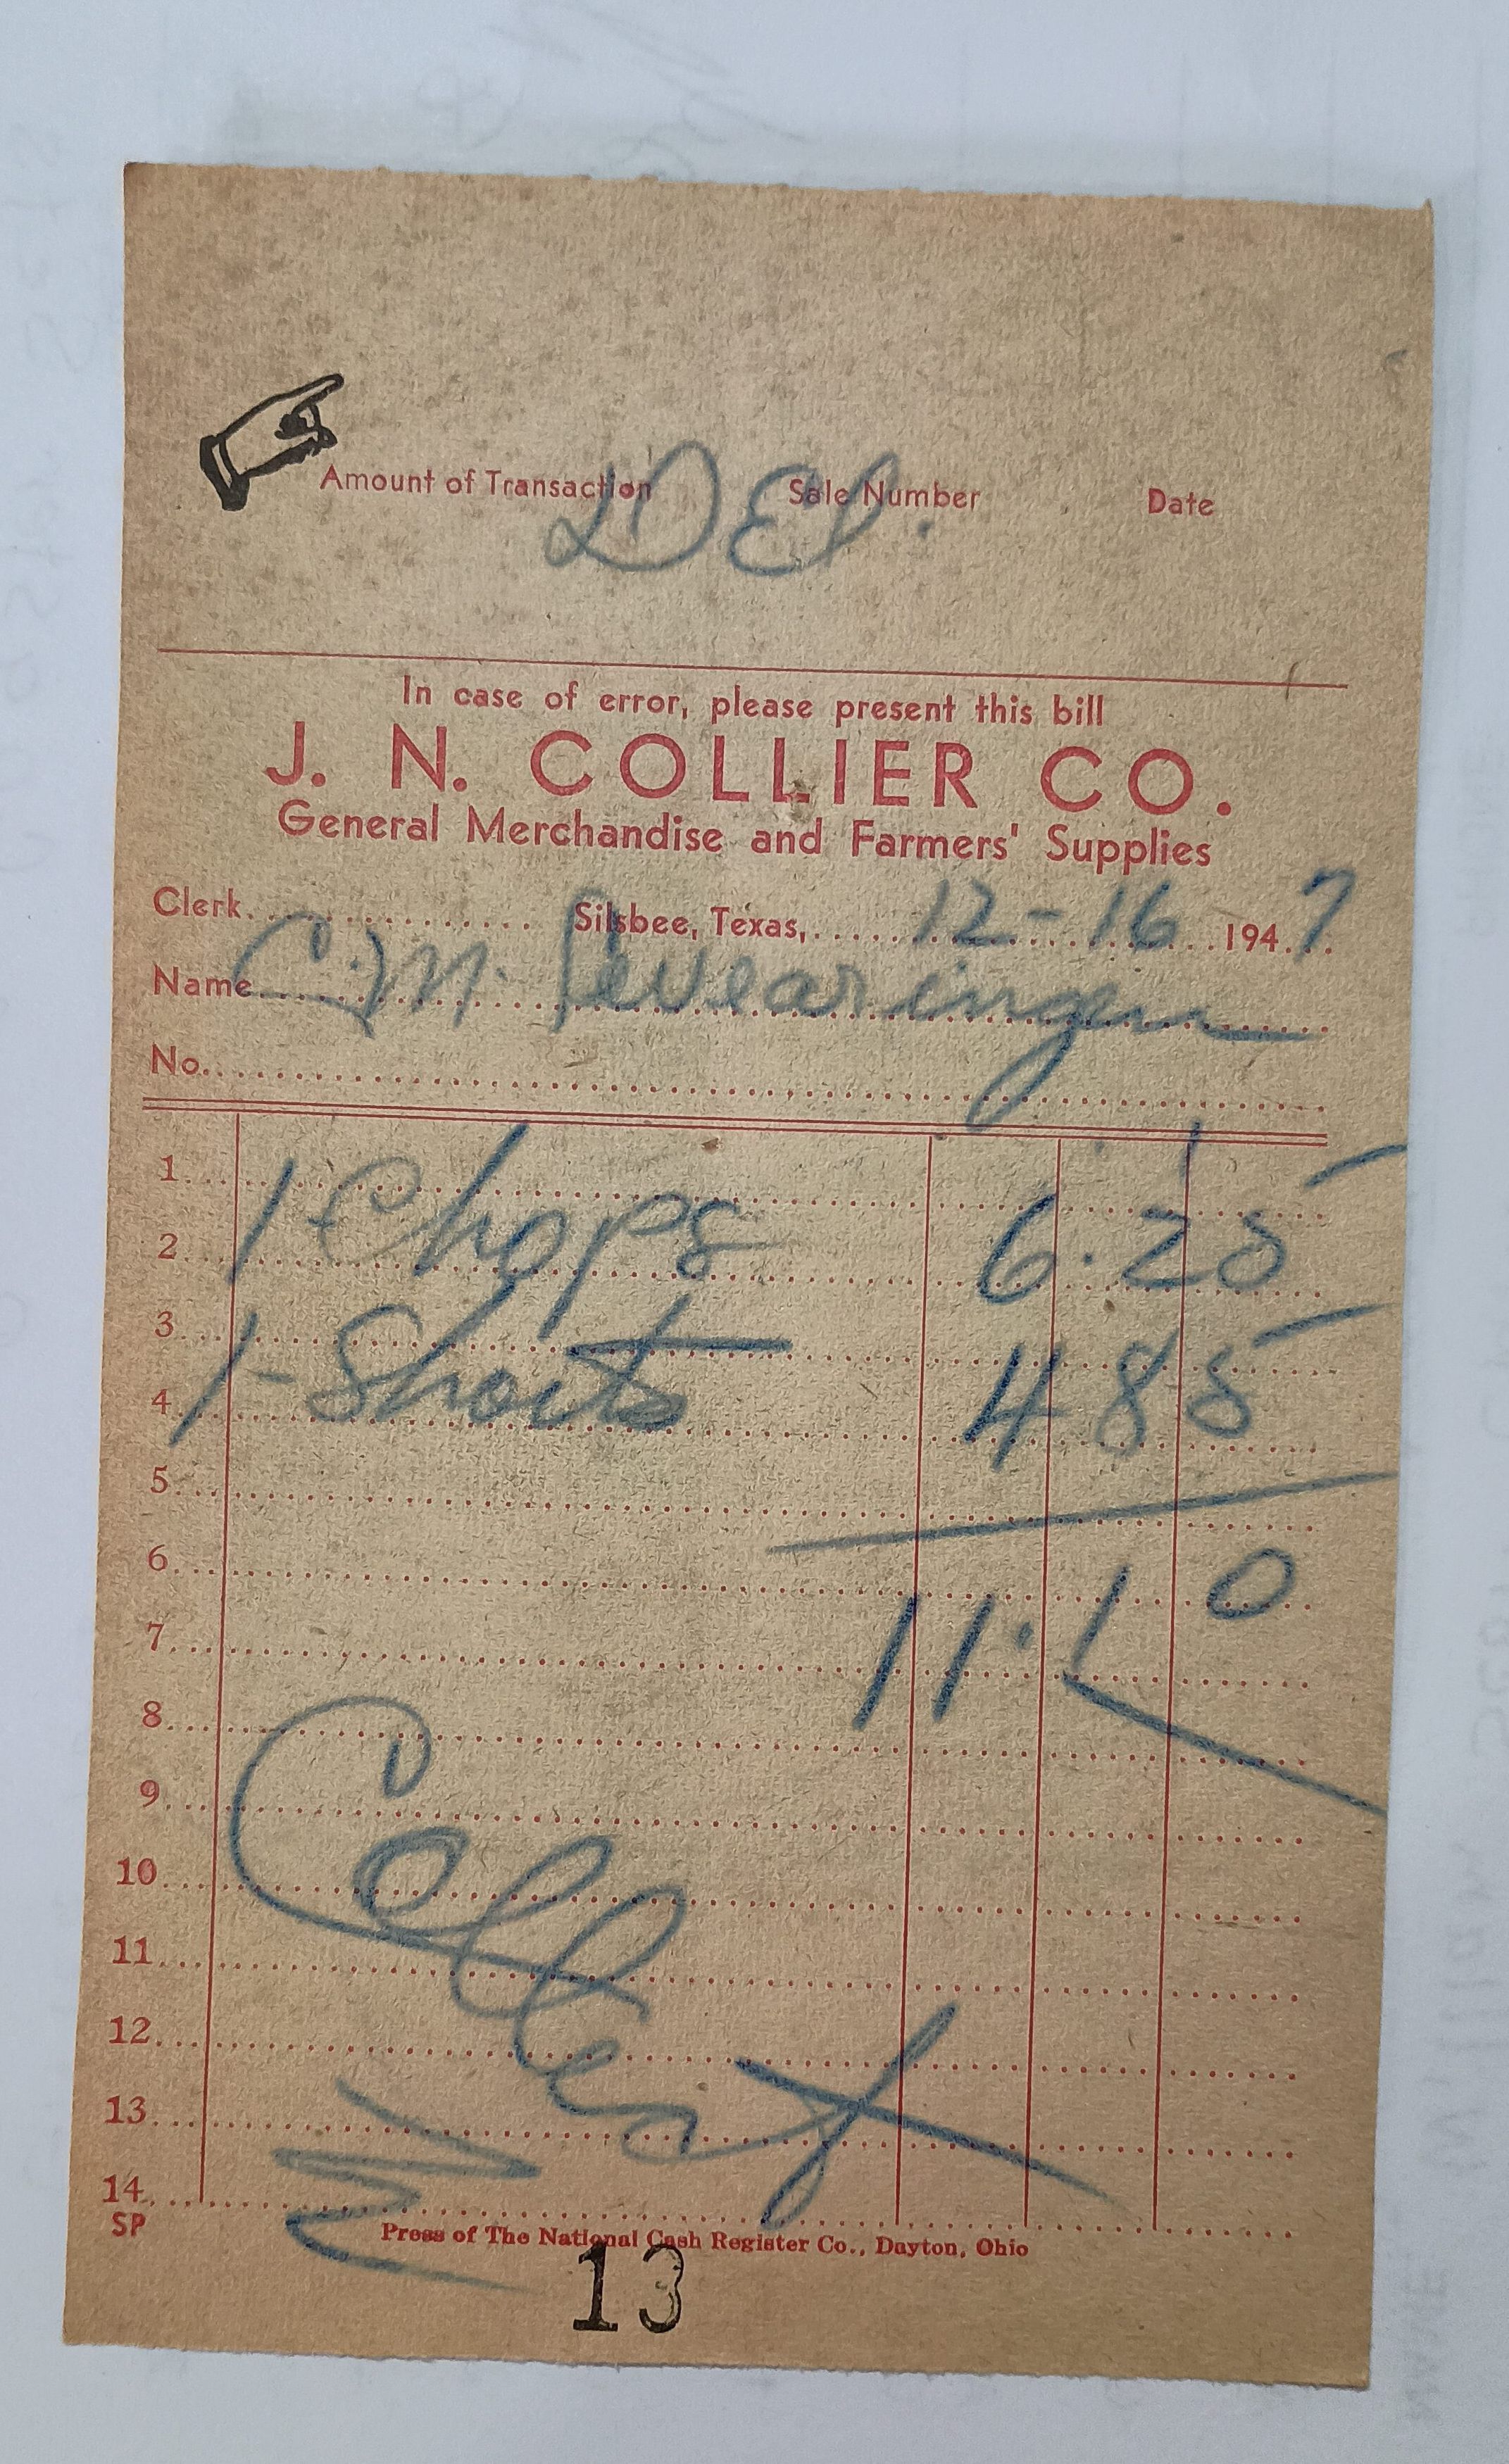 Amount of Transaction Sale Number Date
DEL.
In case of error, please present this bill
J. N. COLLIER CO.
General Merchandise and Farmers' Supplies
Clerk Silsbee, Texas, 12-16 1947
Name C. M. Swearingen
No.
1
2 1 Chops 6.25
3
4 1- Shorts 4 85
5
6
7 11.10
8
9
10
11
12
13
14
Collect
SP
Press of The National Cash Register Co., Dayton, Ohio
13